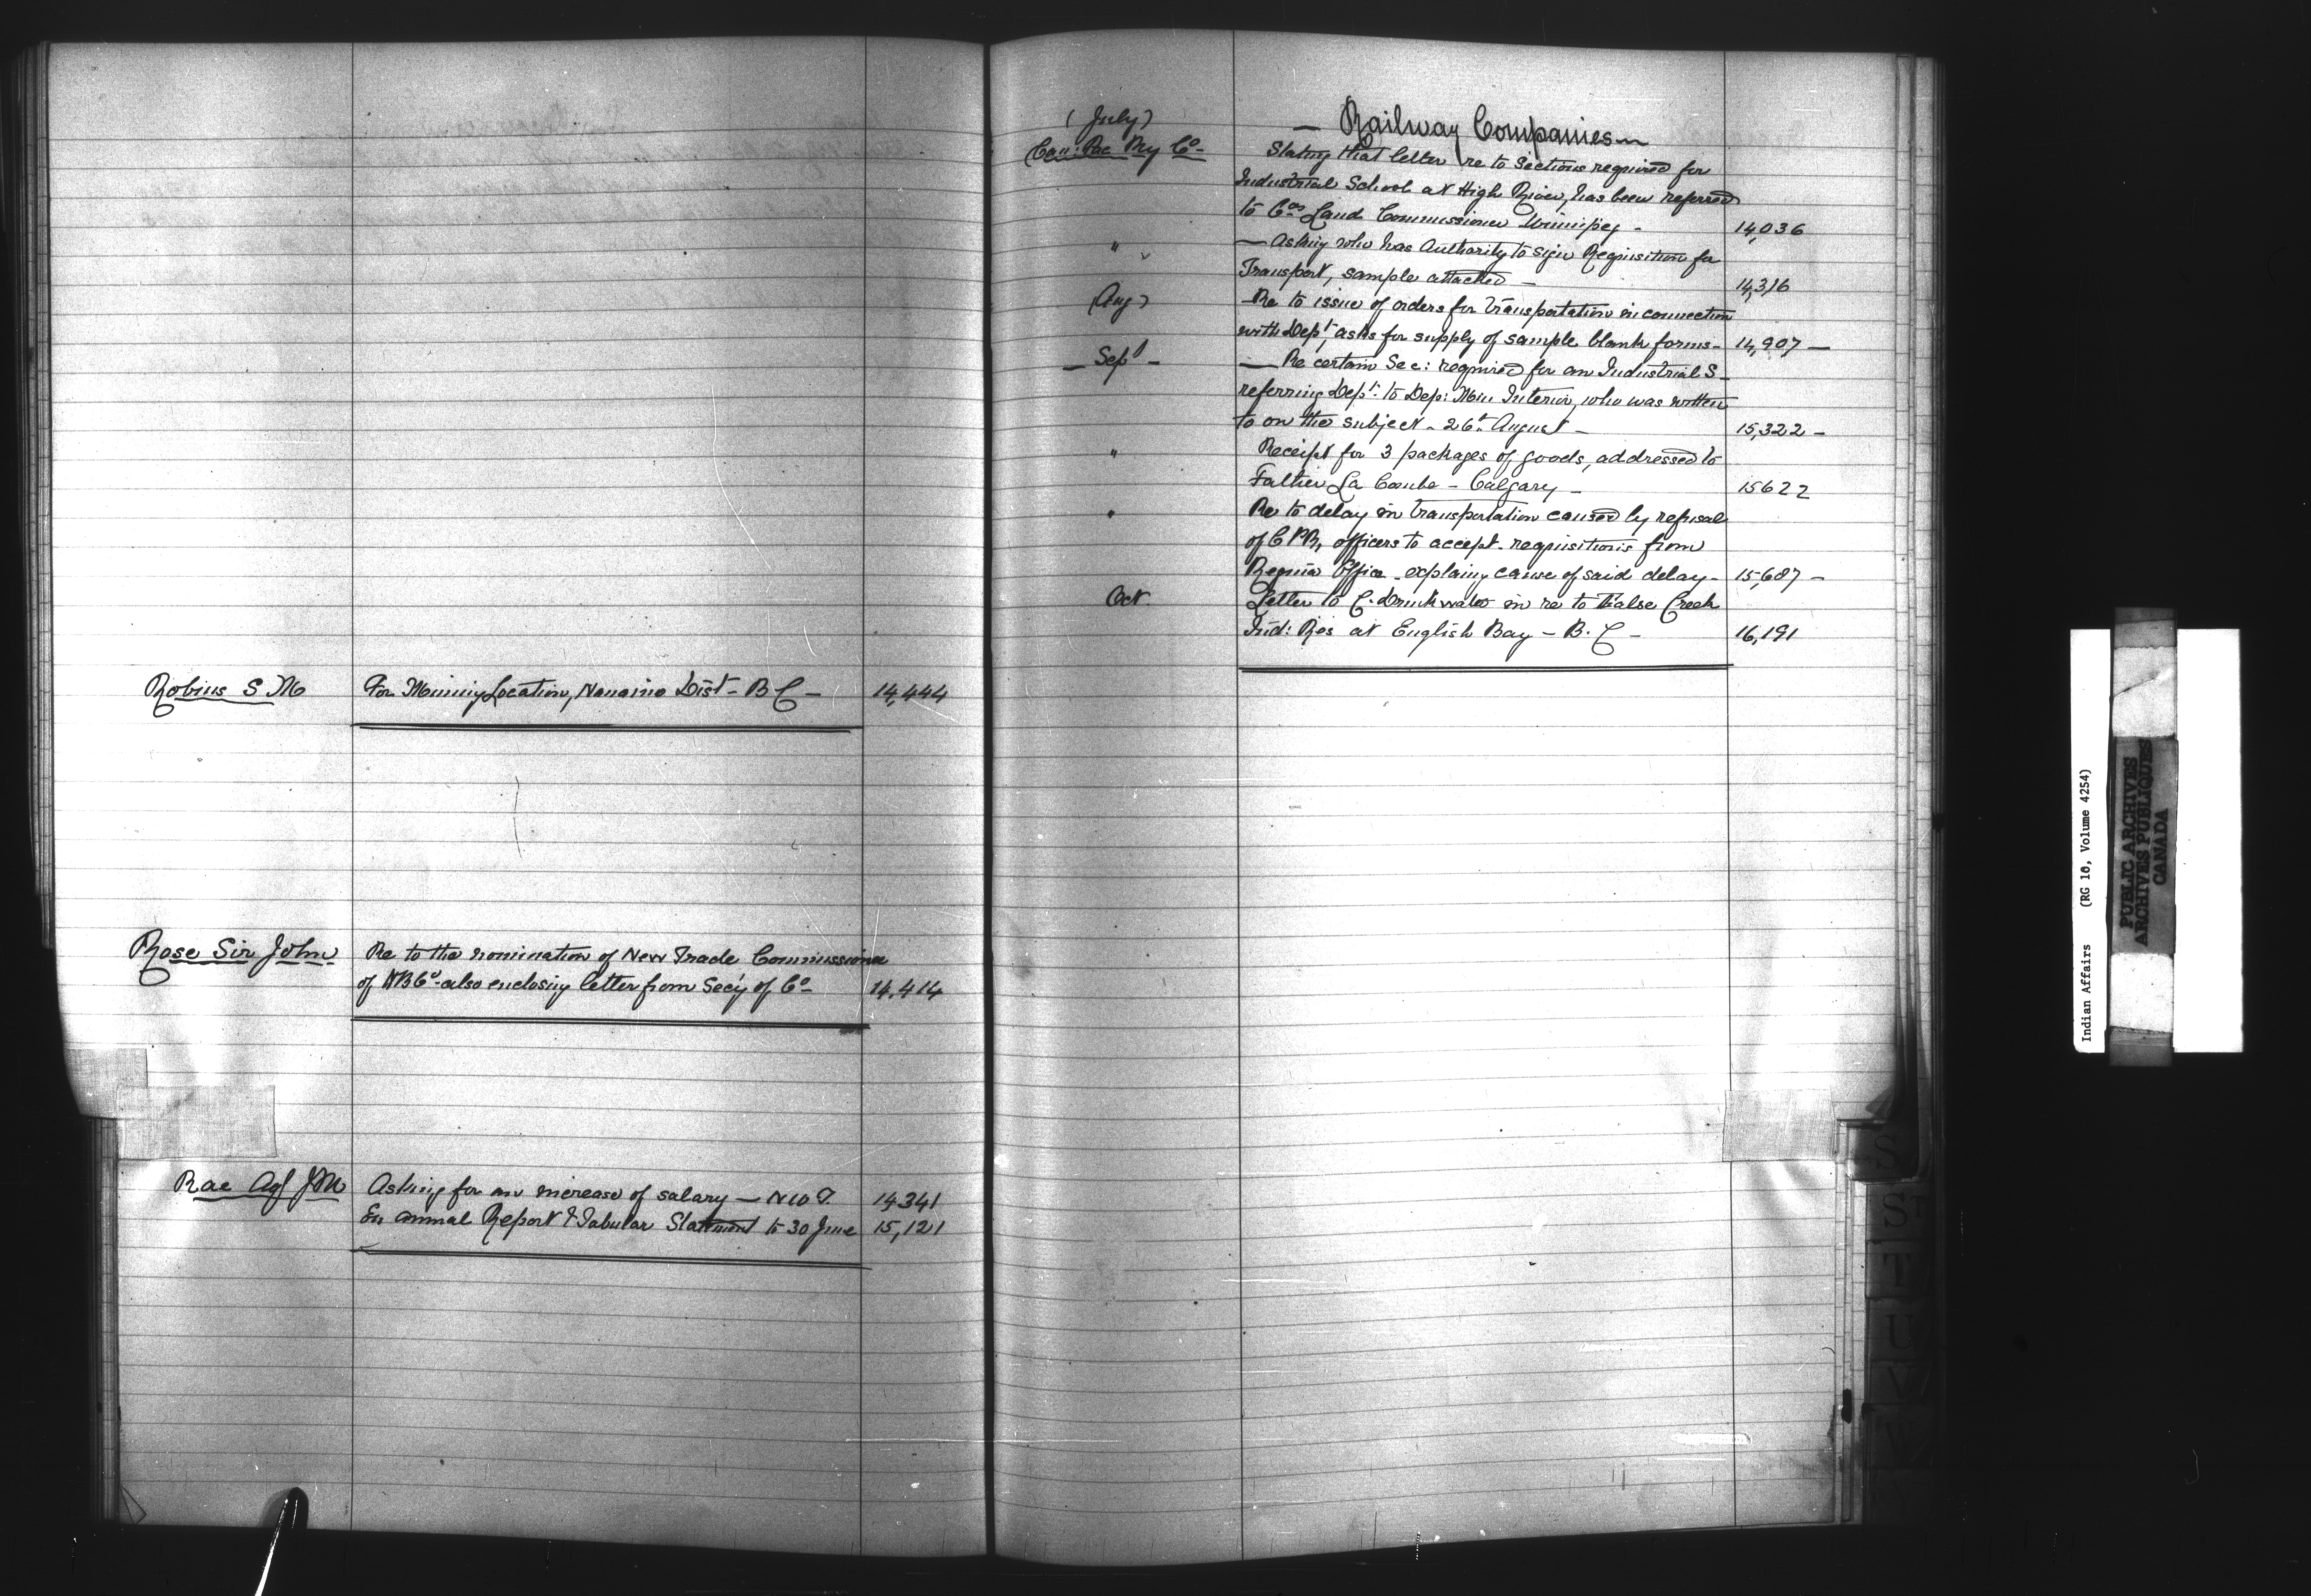 Robins S M For Mining Location, Nanaimo Dist - B C - 14,444
Rose Sir John Re to the nomination of New Trade Commissioner
of HB Co - also enclosing letter from Secy of Co - 14,414
Rae Agt J M Asking for an increase of salary - N W T. 14341
En annual Report & Tabular Statement to 30 June 15,121
(July) - Railway Companies -
Can: Pac Ry Co - Stating that letter re to Sections required for
Industrial School at High River, has been referred
to Cos Land Commissioner Winnipeg - 14,036
" - Asking who has Authority to sign Requisition for
Transport, sample attached - 14,316
(Aug) Re to issue of orders for transportation in connection
with Dept, asks for supply of sample blank forms - 14,907 -
- Sept - - Re certain Sec: required for an Industrial S -
referring Dept. to Dep: Min Interior, who was written
to on the subject - 26th August - 15,322 -
" Receipt for 3 packages of goods, addressed to
Father La Combe - Calgary - 15622
" Re to delay in transportation caused by refusal
of C P R, officers to accept requisitions from
Regina Office - explaing cause of said delay - 15,687 -
Oct. Letter to C. Drinkwater in re to False Creek
Ind: Res at English Bay - B. C - 16,191
S
S
T
U
V
W
Indian Affairs (RG 10, Volume 4254)
PUBLIC ARCHIVES
ARCHIVES PUBLIQUES
CANADA